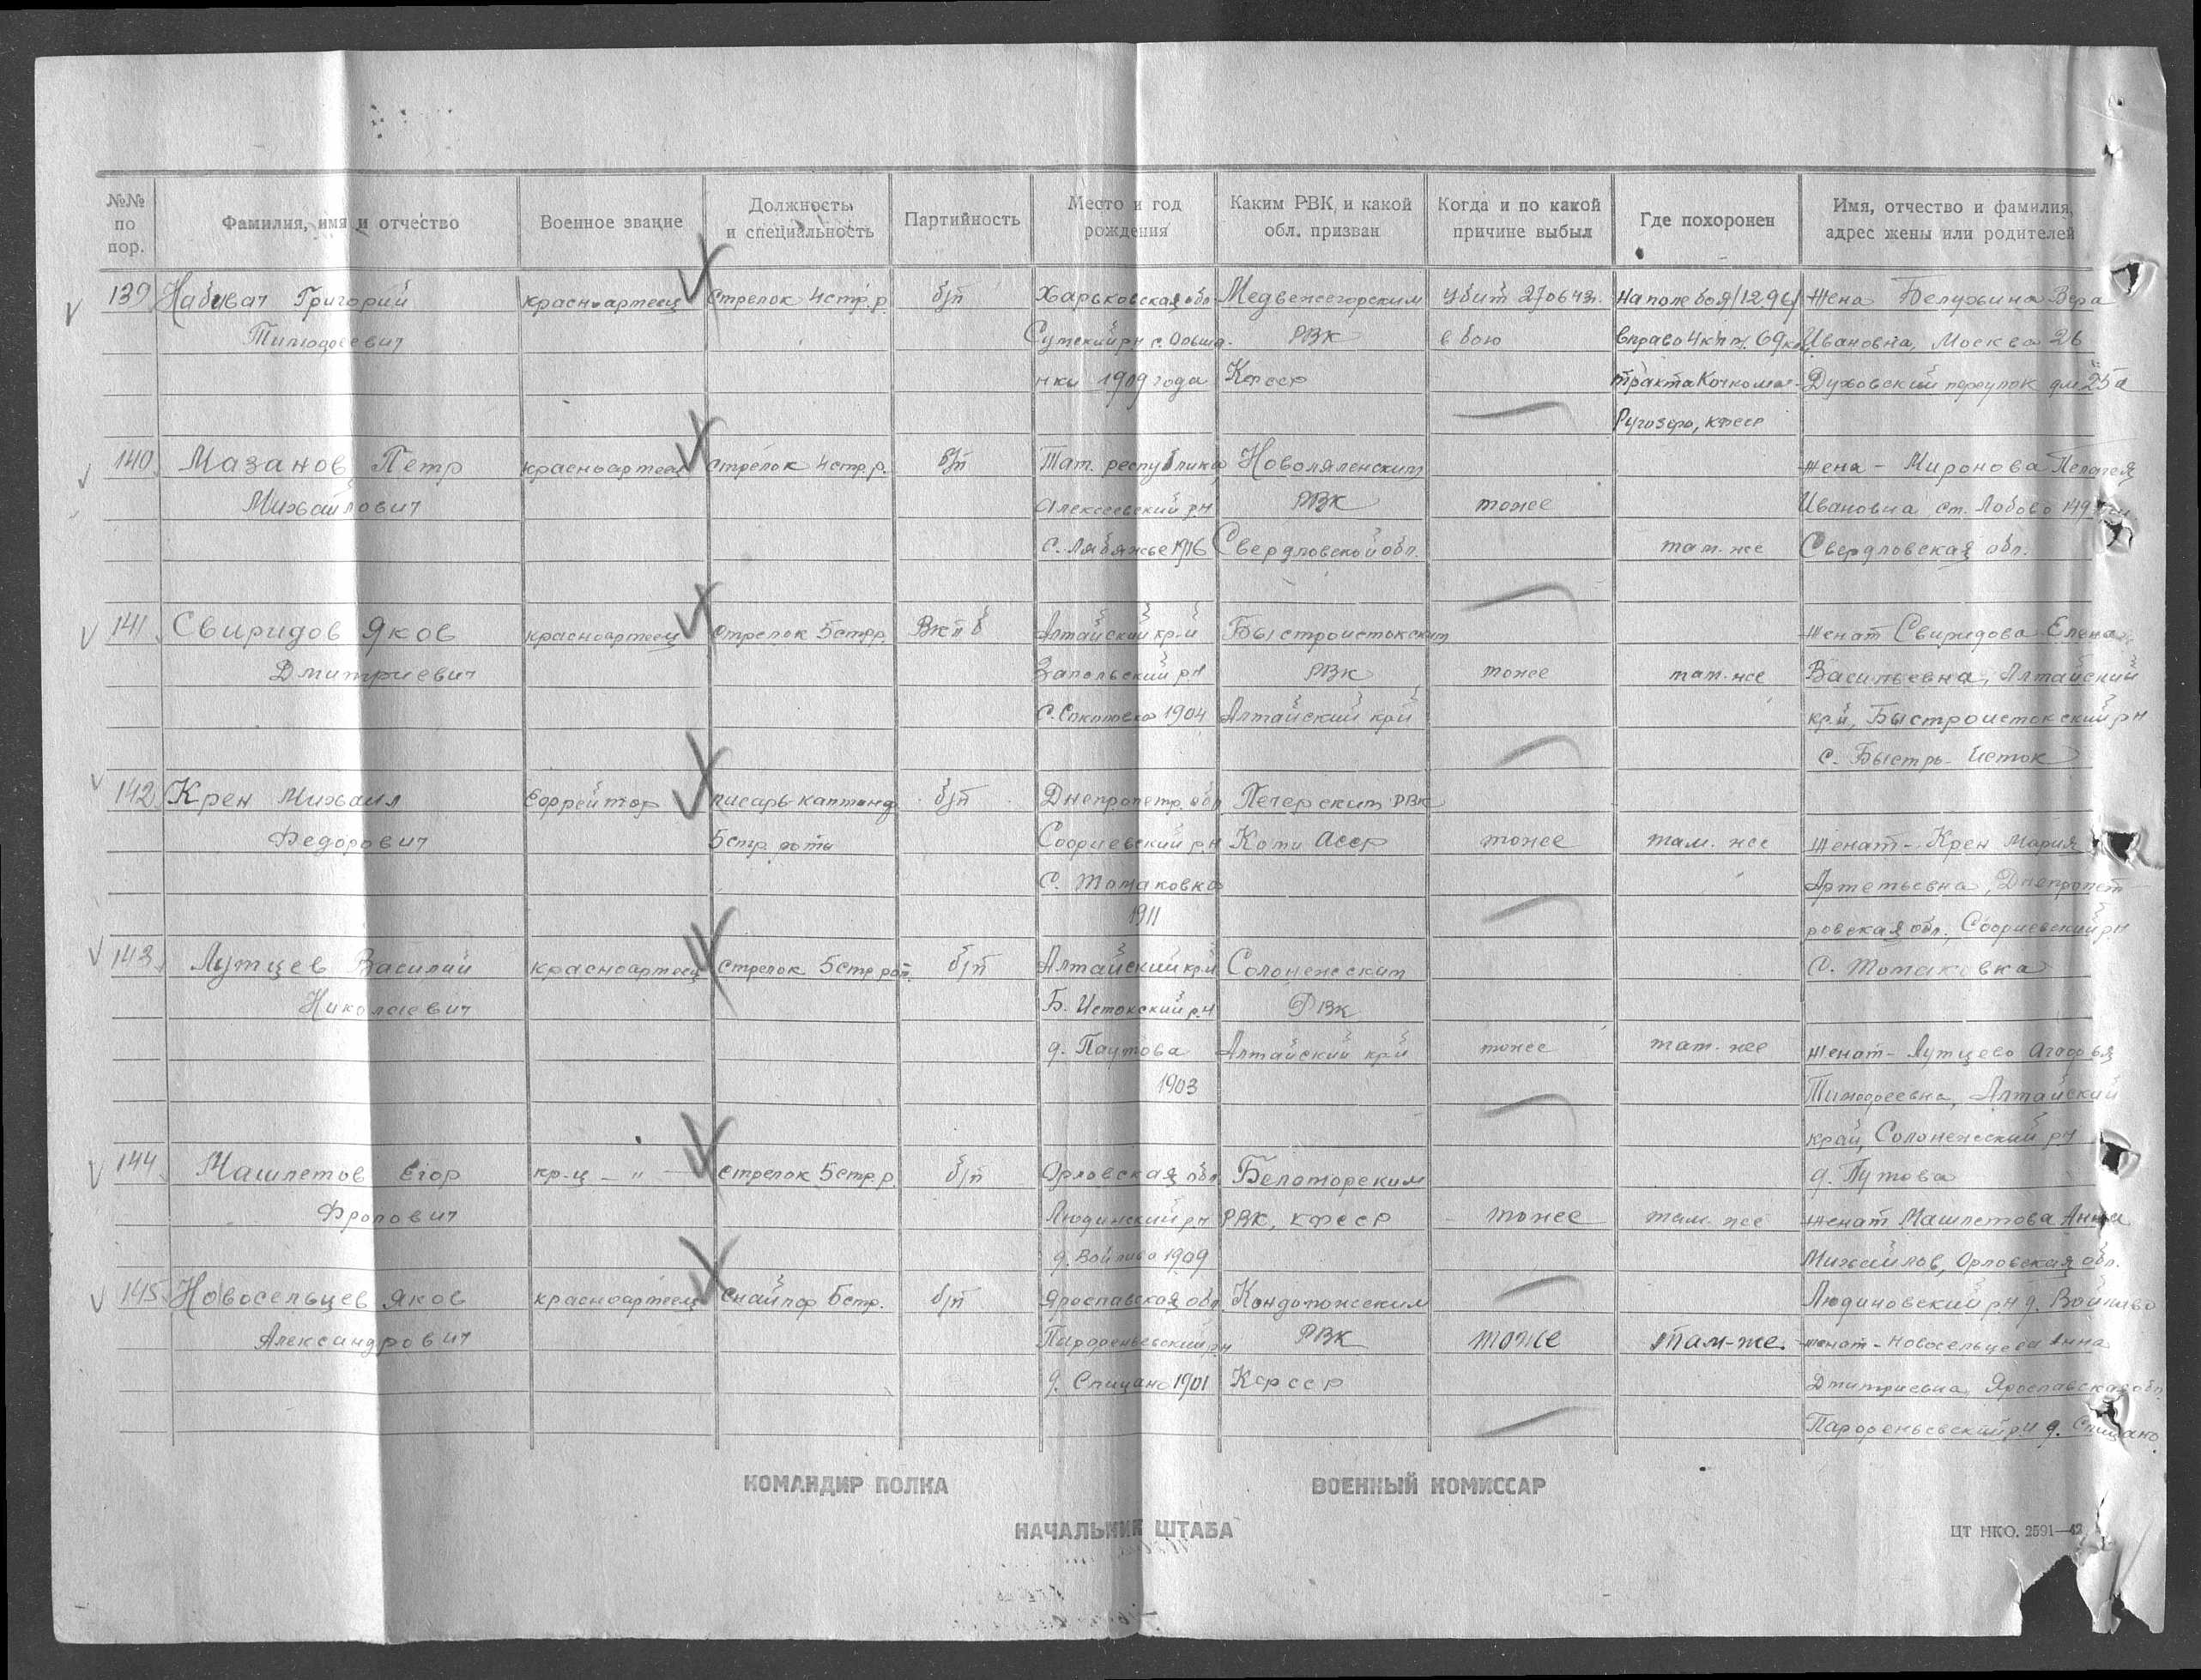 №№ по пор.
Фамилия, имя и отчество
Военное звание
Должность и специальность
Партийность
Место и год рождения
Каким РВК и какой обл. призван
Когда и по какой причине выбыл
Где похоронен
Имя, отчество и фамилия, адрес жены или родителей
139 Набивач Григорий красноармеец стрелок 4 стр. р. б/п Харьковская обл. Медвежегорским убит 27.06.43г. На поле боя /129,6/ жена Белухина Вера
РВК в бою вправо 4 км 69 км Ивановна, Москва 26
нки 1909 года КФССР тракта Кочкома- Духовский переулок дм 25а
Ругозеро, КФССР
140 Мазанов Петр красноармеец стрелок 4 стр. р. б/п Тат. республика Новолялинским жена - Миронова Пелагея
Михайлович Алексеевский р-н РВК тоже Ивановна ст. Лобово 149
с. Лебяжье 1916 Свердловской обл. там-же Свердловская обл.
141 Свиридов Яков красноармеец стрелок 5 стр. р. ВКПб Алтайский кр-й Быстроистокским женат Свиридова Елена
Дмитриевич р-н РВК тоже там-же Васильевна, Алтайский
1904 Алтайский кр-й кр-й, Быстроистокский р-н
с. Быстр- Исток
142 Крен Михаил Ефрейтор писарь-каптенар. б/п Днепропетр. обл Печерским РВК
Федорович 5 стр роты р-н Коми АССР тоже там-же женат - Крен Мария
с. Томаковка Артемьевна, Днепропет-
1911 ровская обл., р-н
143 Лутцев Василий красноармеец стрелок 5 стр рот. б/п Алтайский кр-й Солонешским с. Томаковка
Николаевич Б. Истокский р-н РВК
д. Паутова Алтайский кр-й тоже там-же женат - Лутцева Агафья
1903 Тимофеевна, Алтайский
край, Солонешский р-н
144 Машлетов Егор кр-ц - " - стрелок 5 стр р. б/п Орловская обл Беломорским д. Путова
Фролович р-н РВК, КФССР тоже там-же женат Машлетова Анна
1909 Михайлов, Орловская обл.
145 Новосельцев Яков красноармеец снайпер 5 стр. б/п Ярославская обл Кондопожским Людиновский р-н д. Войлово
Александрович РВК тоже там-же. женат - Новосельцева Анна
д. Спицино 1901 КФССР Дмитриевна, Ярославская обл.
р-н д. Спицино
КОМАНДИР ПОЛКА
ВОЕННЫЙ КОМИССАР
НАЧАЛЬНИК ШТАБА
ЦТ НКО. 2591—42